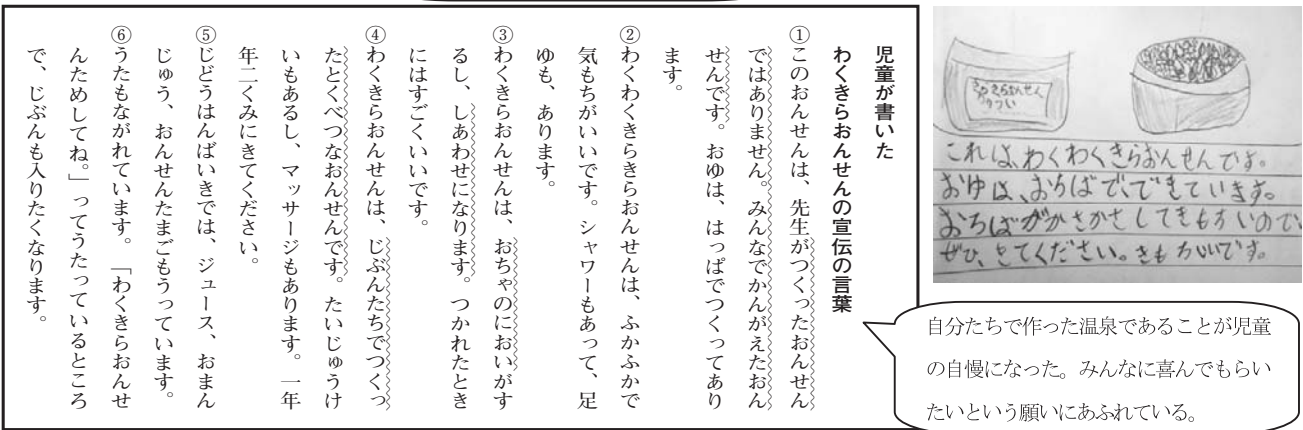 児童が書いた
わくきらおんせんの宣伝の言葉
①このおんせんは、先生がつくったおんせん
ではありません。みんなでかんがえたおん
せんです。おゆは、はっぱでつくってあり
ます。
②わくわくきらきらおんせんは、ふかふかで
気もちがいいです。シャワーもあって、足
ゆも、あります。
③わくきらおんせんは、おちゃのにおいがす
るし、しあわせになります。つかれたとき
にはすごくいいです。
④わくきらおんせんは、じぶんたちでつくっ
たとくべつなおんせんです。たいじゅうけ
いもあるし、マッサージもあります。一年
年二くみにきてください。
⑤じどうはんばいきでは、ジュース、おまん
じゅう、おんせんたまごもうっています。
⑥うたもながれています。「わくきらおんせ
んためしてね。」ってうたっているところ
で、じぶんも入りたくなります。
これは、わくわくきらおんせんです。
おゆは、おちばで、できています。
おちばがかさかさしてきもちいので、
ぜひ、きてください。きもちいです。
自分たちで作った温泉であることが児童
の自慢になった。みんなに喜んでもらい
たいという願いにあふれている。